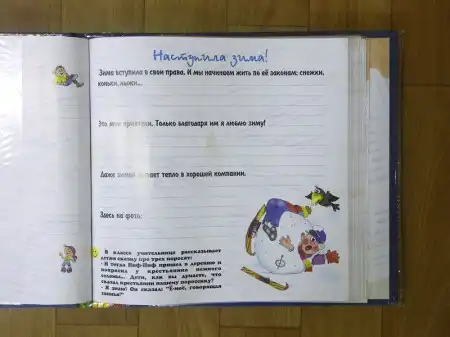 Наступила зима!
Зима вступила в свои права. И мы начинаем жить по её законам: снежки,
коньки, лыжи...
Это мои приятели. Только благодаря им я люблю зиму!
Даже зимой бывает тепло в хорошей компании.
Здесь на фото:
В классе учительница рассказывает
детям сказку про трех поросят:
- И тогда Ниф-Ниф пришел в деревню и
попросил у крестьянина немного
соломы... Дети, как вы думаете, что
сказал крестьянин нашему поросенку?
- Я знаю! Он сказал: "Ё-моё, говорящая
свинья!"